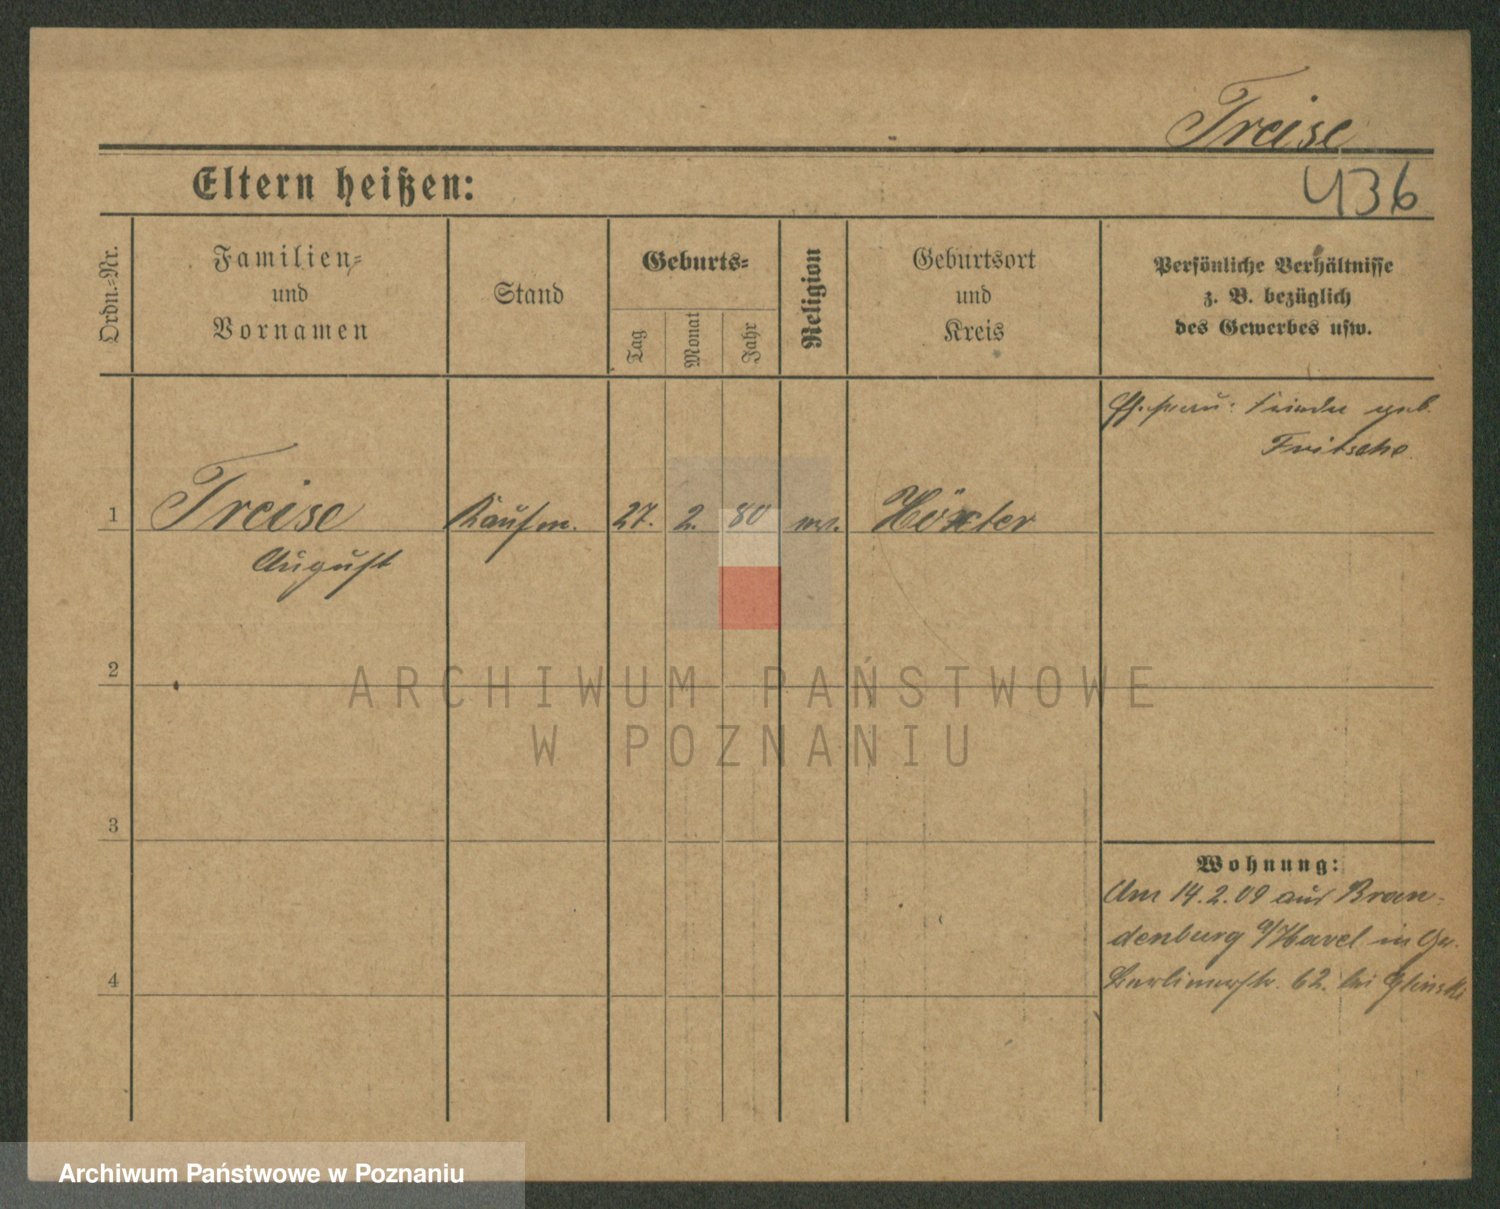 Treise
Eltern heißen:
436
Ordn.-Nr.
Familien-
und
Vornamen
Stand
Geburts-
Tag
Monat
Jahr
Religion
Geburtsort
und
Kreis
Persönliche Verhältnisse
z. B. bezüglich
des Gewerbes usw.
geb.
Fritsche
1
Treise
Kaufm.
27.
2.
80
Höxter
August
2
ARCHIWUM PAŃSTWOWE
W POZNANIU
3
Wohnung:
Am 14.2.09 aus Bran-
denburg a/Havel in
4
Berlinerstr. 62. bei Glinski
Archiwum Państwowe w Poznaniu